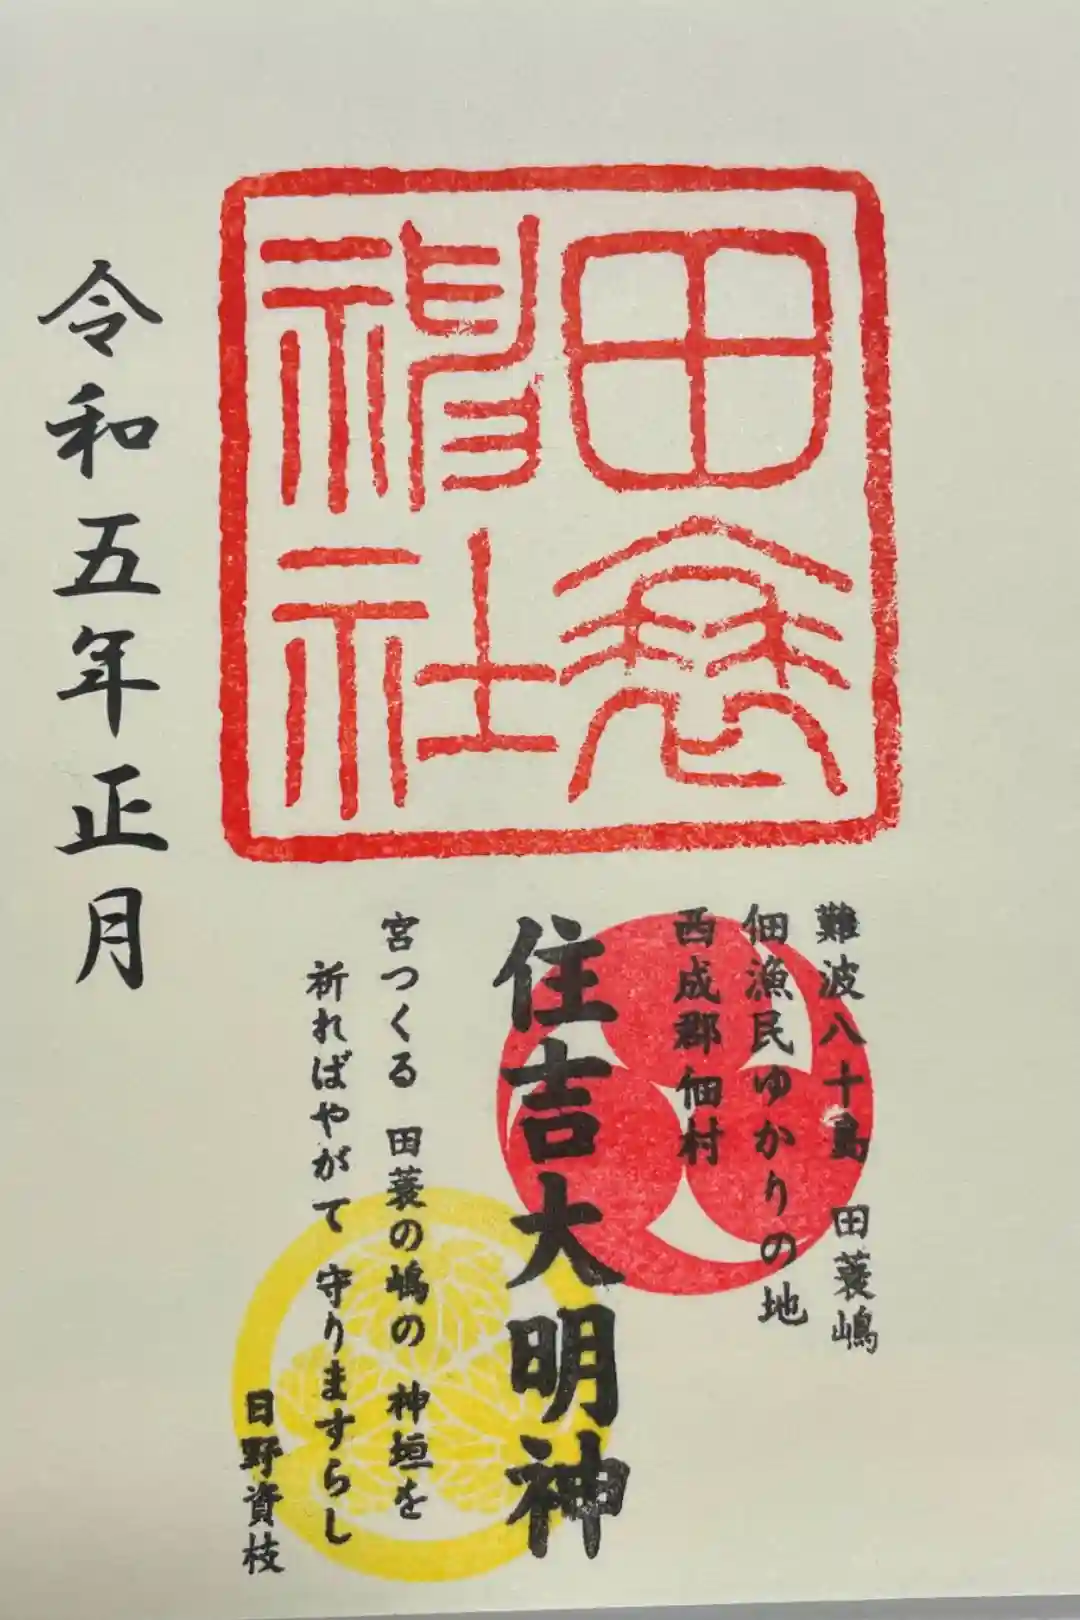 田蓑
神社
難波八十島　田蓑嶋
佃漁民ゆかりの地
西成郡佃村
住吉大明神
宮つくる　田蓑の嶋の　神垣を
祈ればやがて　守りますらし
日野資枝
令和五年正月